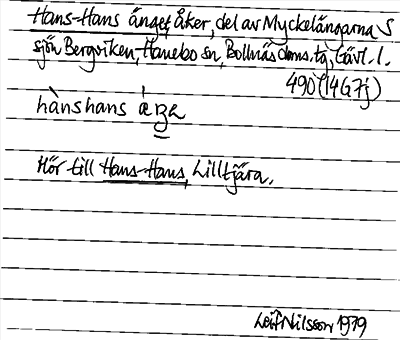 Hans-Hans änget, åker, del av Myckelängarna S
sjön Bergviken, Hanebo sn, Bollnäs doms. tg, Gävl. l.
490 (14G7j)
hànshans
Hör till Hans-Hans, Lilltjära.
Leif Nilsson 1979